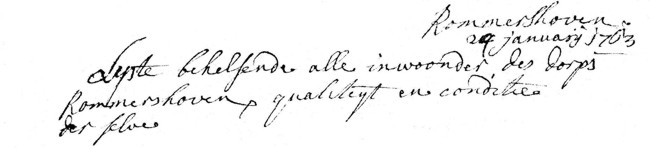 Rommershoven
24 january 1763
Lyste behelsende alle inwoonder des dorps
Rommershoven, qualiteyt en conditie
der selve